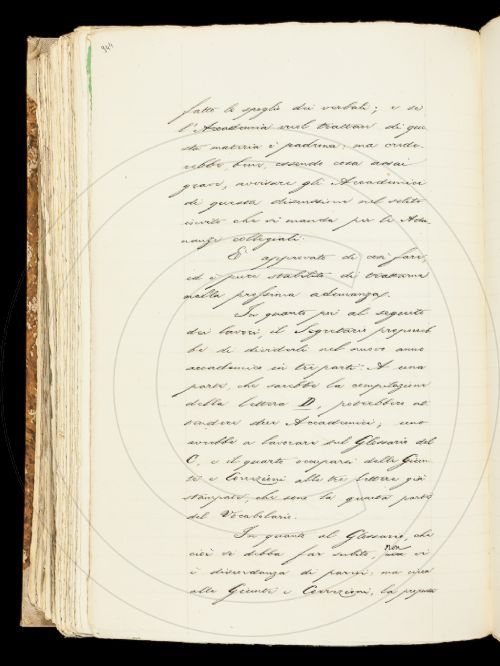 944
fatto lo spoglio dei verbali; e se
l'Accademia vuol trattare di que
sta materia è padrona: ma crede
rebbe bene, essendo cosa assai
grave, avvisare gli Accademici
di questa discussione nel solito
invito che si manda per le Adu
nanze collegiali.
È approvato di così fare,
ed è pure stabilito di trattarne
nella prossima adunanza.
In quanto poi al seguito
dei lavori, il Segretario proporreb
be di dividerli nel nuovo anno
accademico in tre parti. A una
parte, che sarebbe la compilazione
della lettera D, potrebbero at
tendere due Accademici; uno
avrebbe a lavorare sul Glossario del
C, e il quarto occuparsi delle Giun
te e Correzioni alle tre lettere già
stampate, che sono la quarta parte
del Vocabolario.
In quanto al Glossario, che
ciò si debba far subito, non vi
è discordanza di pareri; ma circa
alle Giunte e Correzioni, la proposta